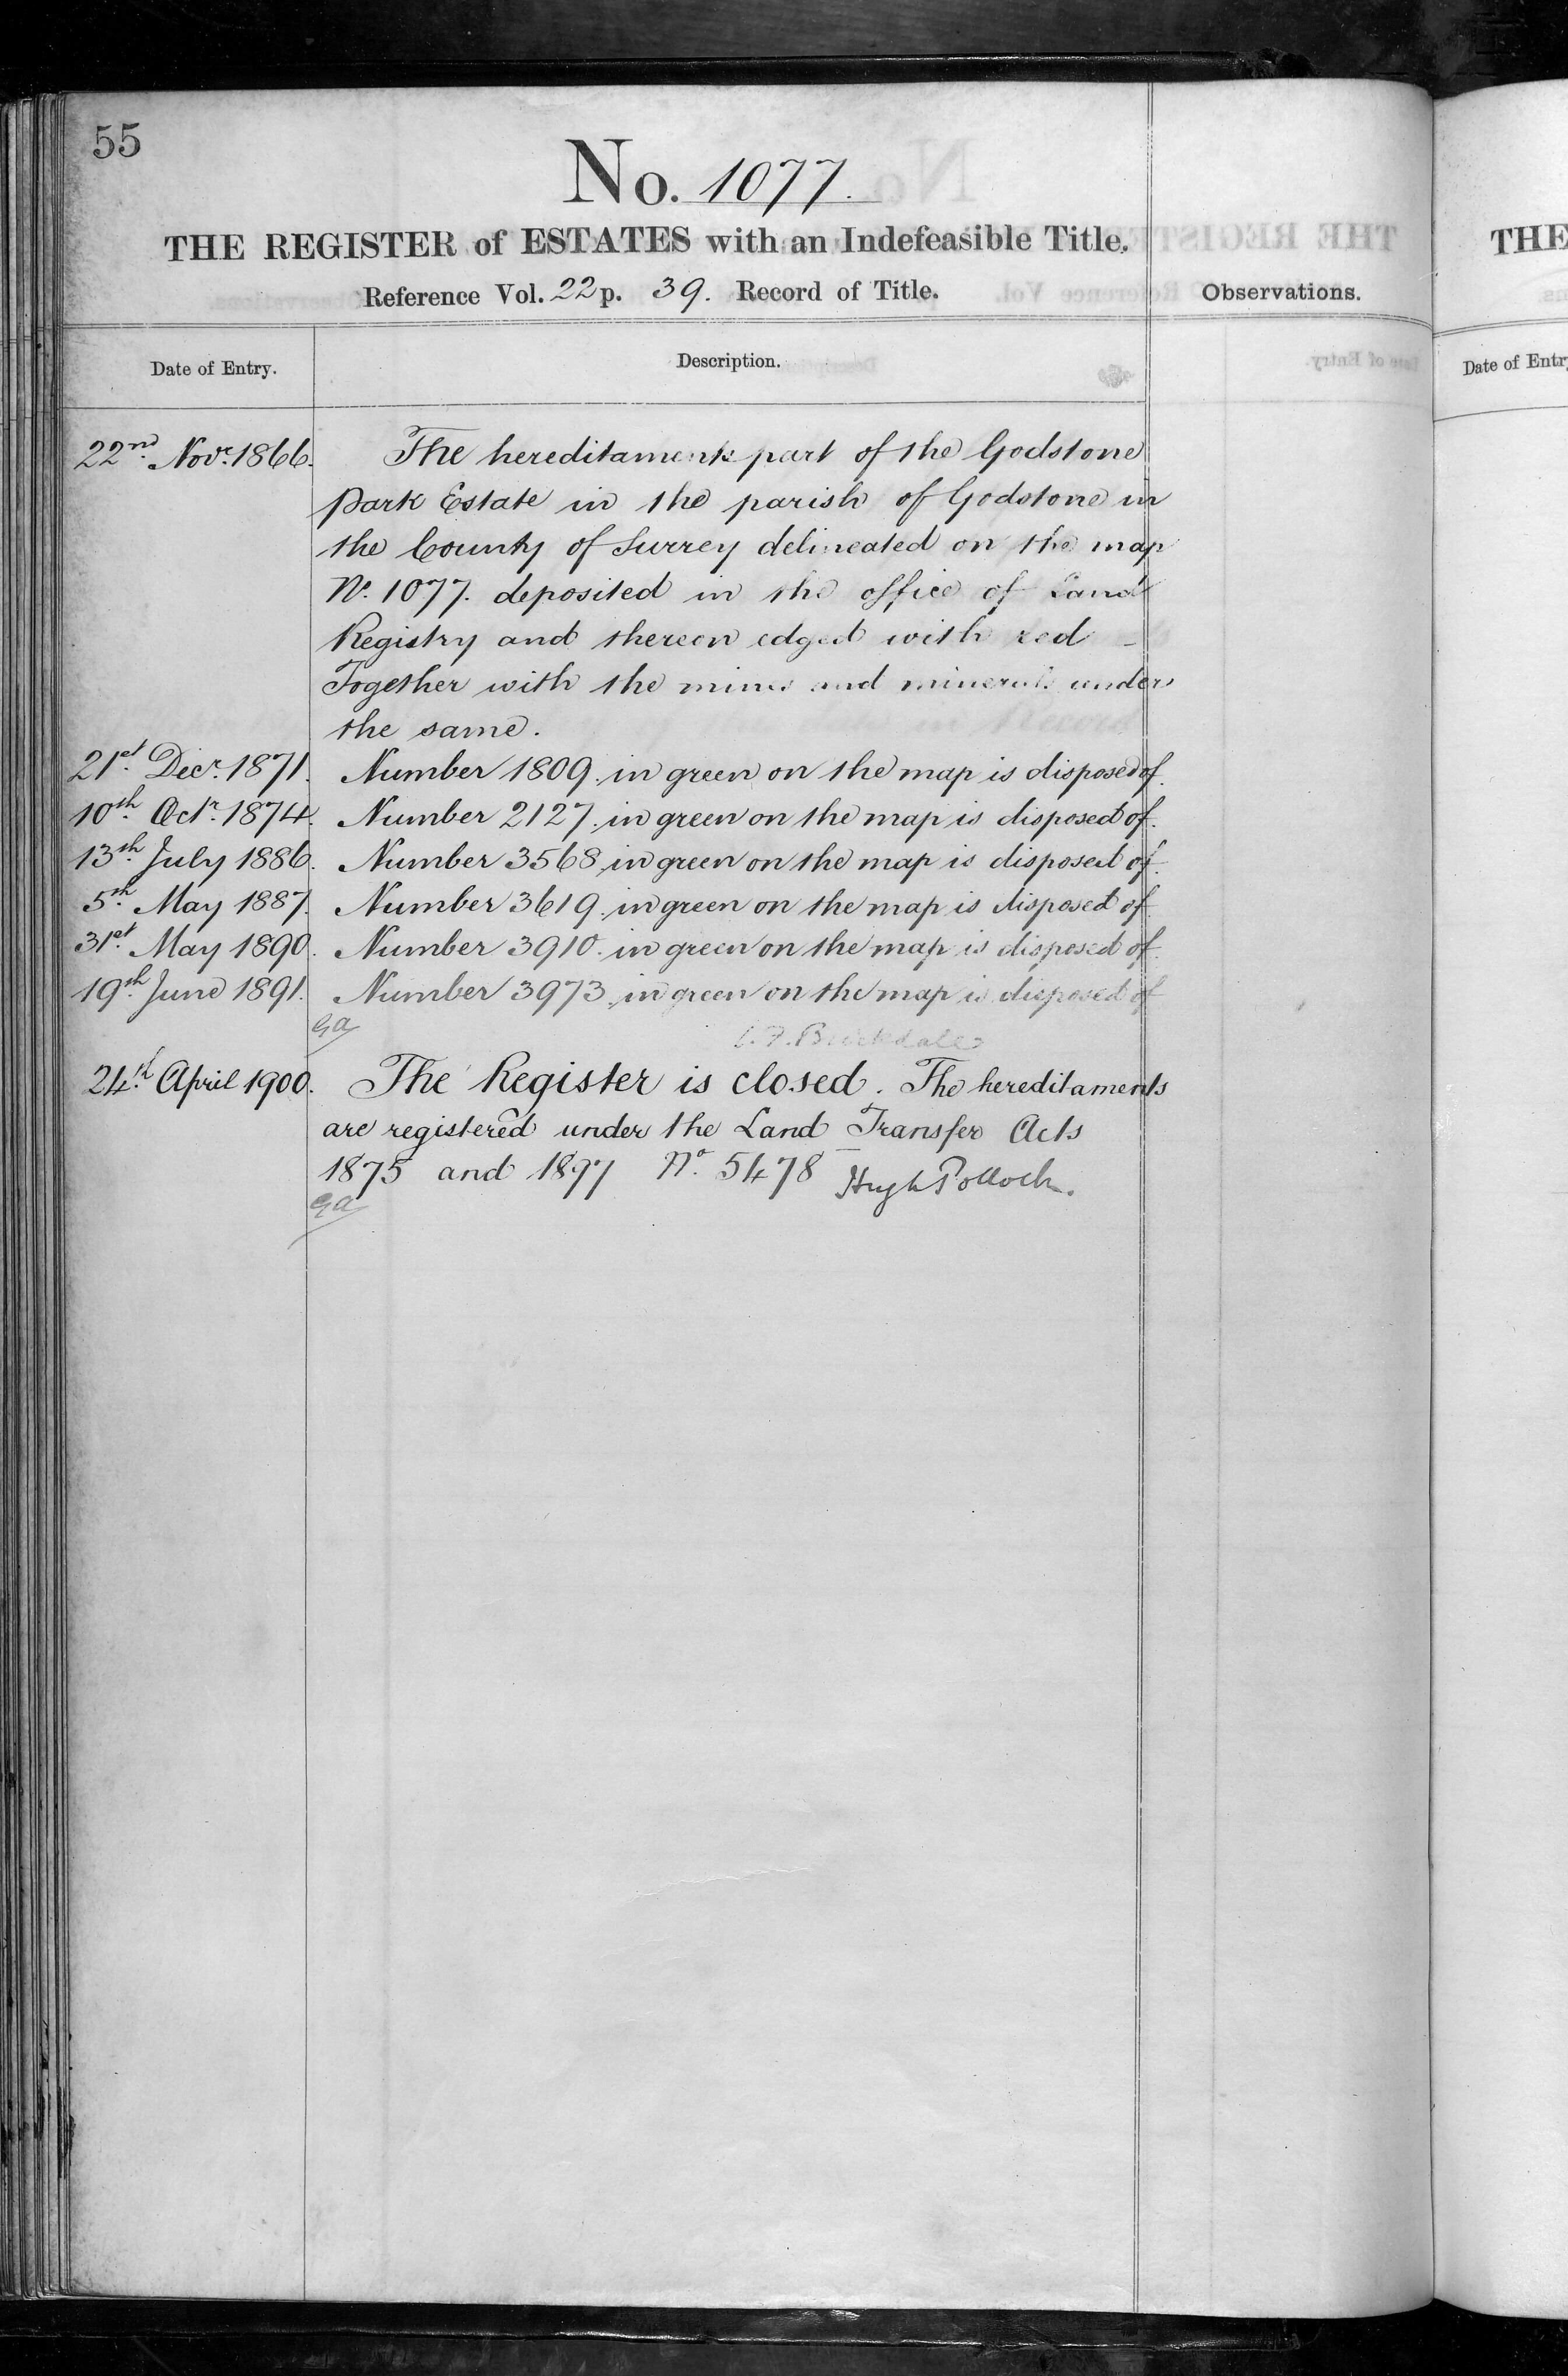 55
No. 1077.
THE REGISTER of ESTATES with an Indefeasible Title.
Reference Vol. 22 p. 39. Record of Title.
Observations.
Date of Entry.
Description.
22nd. Novr. 1866. The hereditaments part of the Godstone
Park Estate in the parish of Godstone in
the County of Surrey delineated on the map
No. 1077. deposited in the office of Land
Registry and thereon edged with red –
Together with the mines and minerals under
the same.
21st. Decr. 1871. Number 1809. in green on the map is disposed of.
10th. Octr. 1874. Number 2127. in green on the map is disposed of.
13th. July 1886. Number 3568. in green on the map is disposed of.
5th. May 1887. Number 3619. in green on the map is disposed of.
31st. May 1890. Number 3910. in green on the map is disposed of.
19th. June 1891. Number 3973. in green on the map is disposed of
24th. April 1900. The Register is closed. The hereditaments
are registered under the Land Transfer Acts
1875 and 1897 No. 5478 Hugh Pollock.
THE
Date of Entry